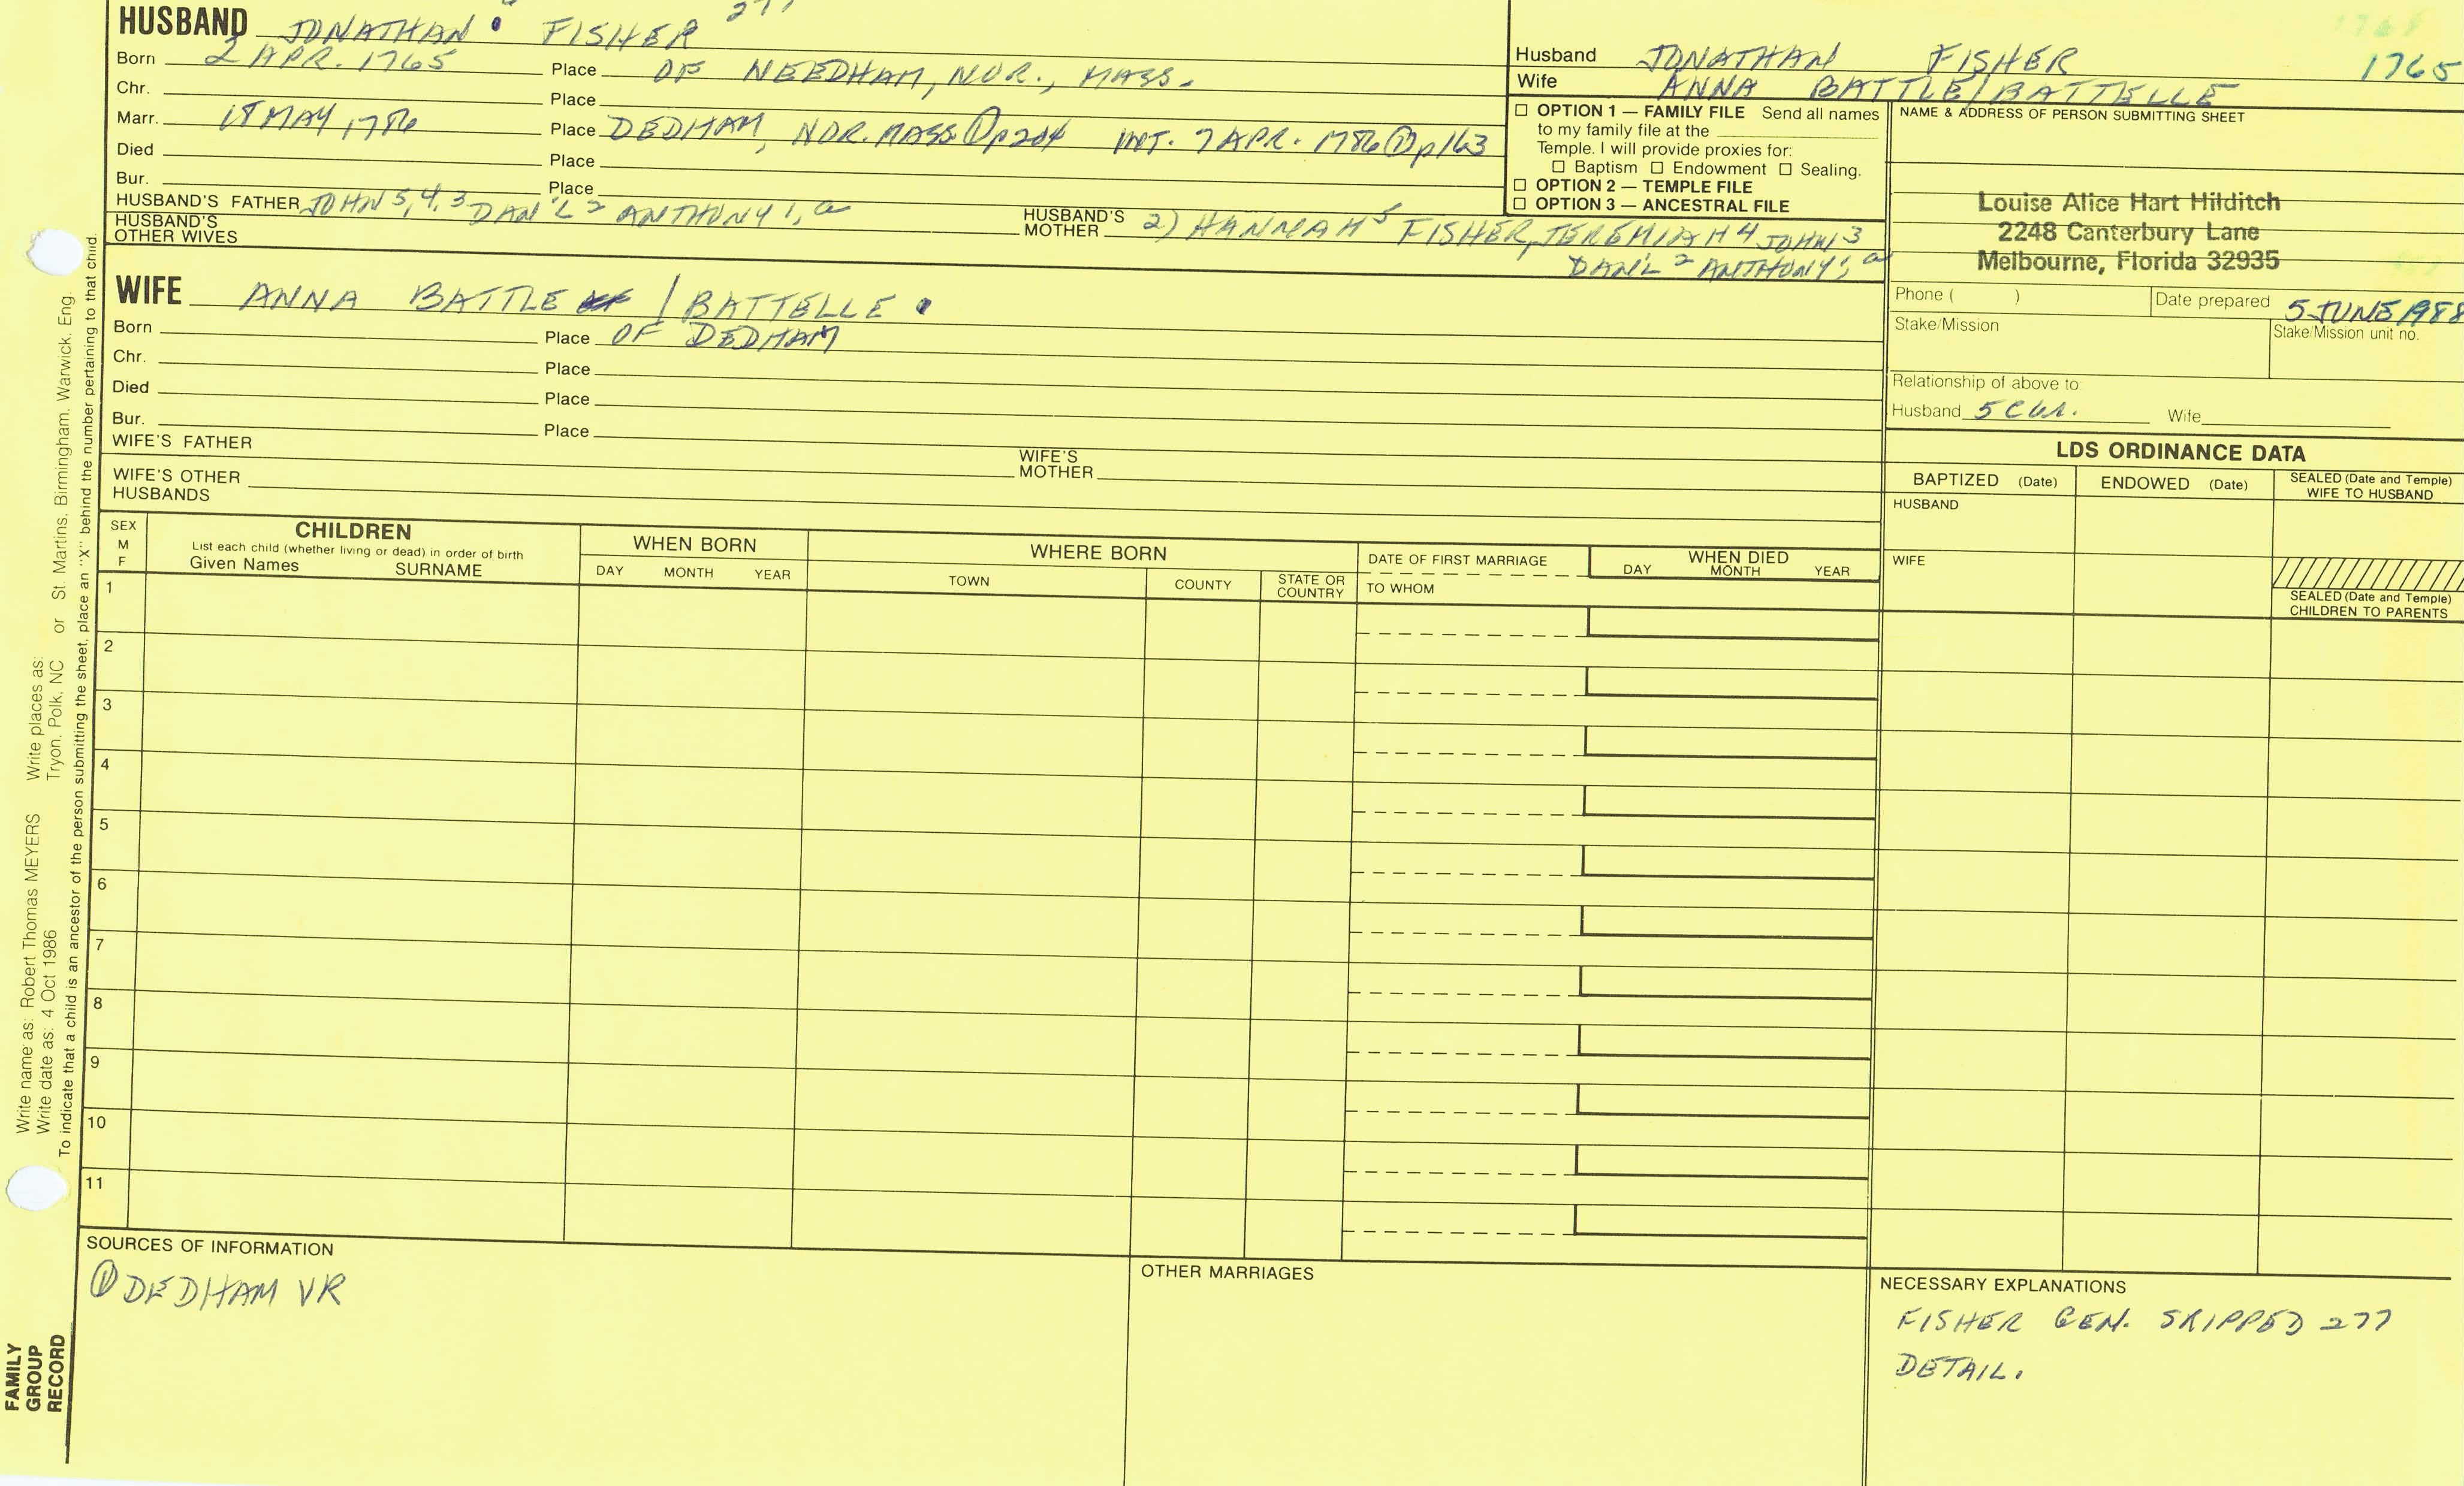 277
HUSBAND JONATHAN FISHER
Born 2 APR. 1765 Place OF NEEDHAM, NOR., MASS.
Chr. Place
Marr. 18 MAY 1786 Place DEDHAM, NOR. MASS ① p204 INT. 7 APR. 1786 ① p163
Died Place
Bur. Place
HUSBAND'S FATHER JOHN 5,4,3 DAN'L 2 ANTHONY 1, a
HUSBAND'S MOTHER 2) HANNAH 5 FISHER, JEREMIAH 4 JOHN 3
DAN'L 2 ANTHONY 1, a
HUSBAND'S OTHER WIVES
Husband JONATHAN FISHER 1765
Wife ANNA BATTLE/BATTELLE
☐ OPTION 1 — FAMILY FILE Send all names
to my family file at the
Temple. I will provide proxies for:
☐ Baptism ☐ Endowment ☐ Sealing.
☐ OPTION 2 — TEMPLE FILE
☐ OPTION 3 — ANCESTRAL FILE
NAME & ADDRESS OF PERSON SUBMITTING SHEET
Louise Alice Hart Hilditch
2248 Canterbury Lane
Melbourne, Florida 32935
Phone ( ) Date prepared 5 JUNE 1988
Stake/Mission Stake/Mission unit no.
Relationship of above to:
Husband 5 Wife
WIFE ANNA BATTLE / BATTELLE
Born Place OF DEDHAM
Chr. Place
Died Place
Bur. Place
WIFE'S FATHER WIFE'S MOTHER
WIFE'S OTHER HUSBANDS
LDS ORDINANCE DATA
BAPTIZED (Date) ENDOWED (Date) SEALED (Date and Temple) WIFE TO HUSBAND
HUSBAND
WIFE
SEALED (Date and Temple) CHILDREN TO PARENTS
SEX M F
CHILDREN
List each child (whether living or dead) in order of birth
Given Names SURNAME
WHEN BORN
DAY MONTH YEAR
WHERE BORN
TOWN COUNTY STATE OR COUNTRY
DATE OF FIRST MARRIAGE
TO WHOM
WHEN DIED
DAY MONTH YEAR
1
2
3
4
5
6
7
8
9
10
11
SOURCES OF INFORMATION
① DEDHAM VR
OTHER MARRIAGES
NECESSARY EXPLANATIONS
FISHER GEN. SKIPPED 277
DETAIL.
Write name as: Robert Thomas MEYERS Write places as: St. Martins, Birmingham, Warwick, Eng.
Write date as: 4 Oct 1986 Tryon, Polk, NC or
To indicate that a child is an ancestor of the person submitting the sheet, place an "X" behind the number pertaining to that child.
FAMILY
GROUP
RECORD